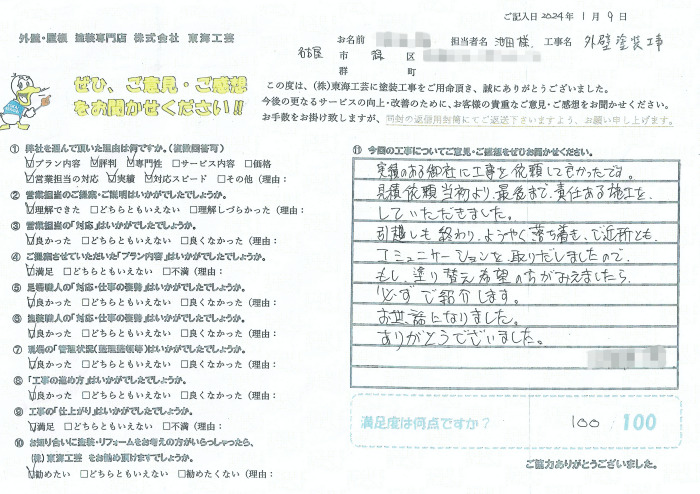 ご記入日 2024年 1月 9日
外壁・屋根 塗装専門店 株式会社 東海工芸
お名前 担当者名 池田様. 工事名 外壁塗装工事
名古屋 市 緑 区
郡 町
ぜひ、ご意見・ご感想
をお聞かせください!!
この度は、(株)東海工芸に塗装工事をご用命頂き、誠にありがとうございました。
今後の更なるサービスの向上・改善のために、お客様の貴重なご意見・ご感想をお聞かせください。
お手数をお掛け致しますが、同封の返信用封筒にてご返送下さいますよう、お願い申し上げます。
① 弊社を選んで頂いた理由は何ですか。(複数回答可)
☑プラン内容 ☑評判 ☑専門性 □サービス内容 □価格
☑営業担当の対応 ☑実績 ☑対応スピード □その他(理由:
② 営業担当のご提案・ご説明はいかがでしたでしょうか。
☑理解できた □どちらともいえない □理解しづらかった(理由:
③ 営業担当の「対応」はいかがでしたでしょうか。
☑良かった □どちらともいえない □良くなかった(理由:
④ ご提案させていただいた「プラン内容」はいかがでしたでしょうか。
☑満足 □どちらともいえない □不満(理由:
⑤ 足場職人の「対応・仕事の姿勢」はいかがでしたでしょうか。
☑良かった □どちらともいえない □良くなかった(理由:
⑥ 塗装職人の「対応・仕事の姿勢」はいかがでしたでしょうか。
☑良かった □どちらともいえない □良くなかった(理由:
⑦ 現場の「管理状況(整理整頓等)はいかがでしたでしょうか。
☑良かった □どちらともいえない □良くなかった(理由:
⑧ 「工事の進め方」はいかがでしたでしょうか。
☑良かった □どちらともいえない □良くなかった(理由:
⑨ 工事の「仕上がり」はいかがでしたでしょうか。
☑満足 □どちらともいえない □不満(理由:
⑩ お知り合いに塗装・リフォームをお考えの方がいらっしゃったら、
(株)東海工芸 をお勧め頂けますでしょうか。
☑勧めたい □どちらともいえない □勧めたくない(理由:
⑪ 今回の工事についてご意見・ご感想をぜひお聞かせください。
実績のある御社に工事を依頼して良かったです。
見積依頼当初より、最後まで、責任ある施工を、
していただきました。
引越しも終わり、ようやく落ち着き、ご近所とも、
コミュニケーションを取りだしましたので、
もし、塗り替え希望の方がみえましたら、
必ずご紹介します。
お世話になりました。
ありがとうございました。
満足度は何点ですか? 100 / 100
ご協力ありがとうございました。